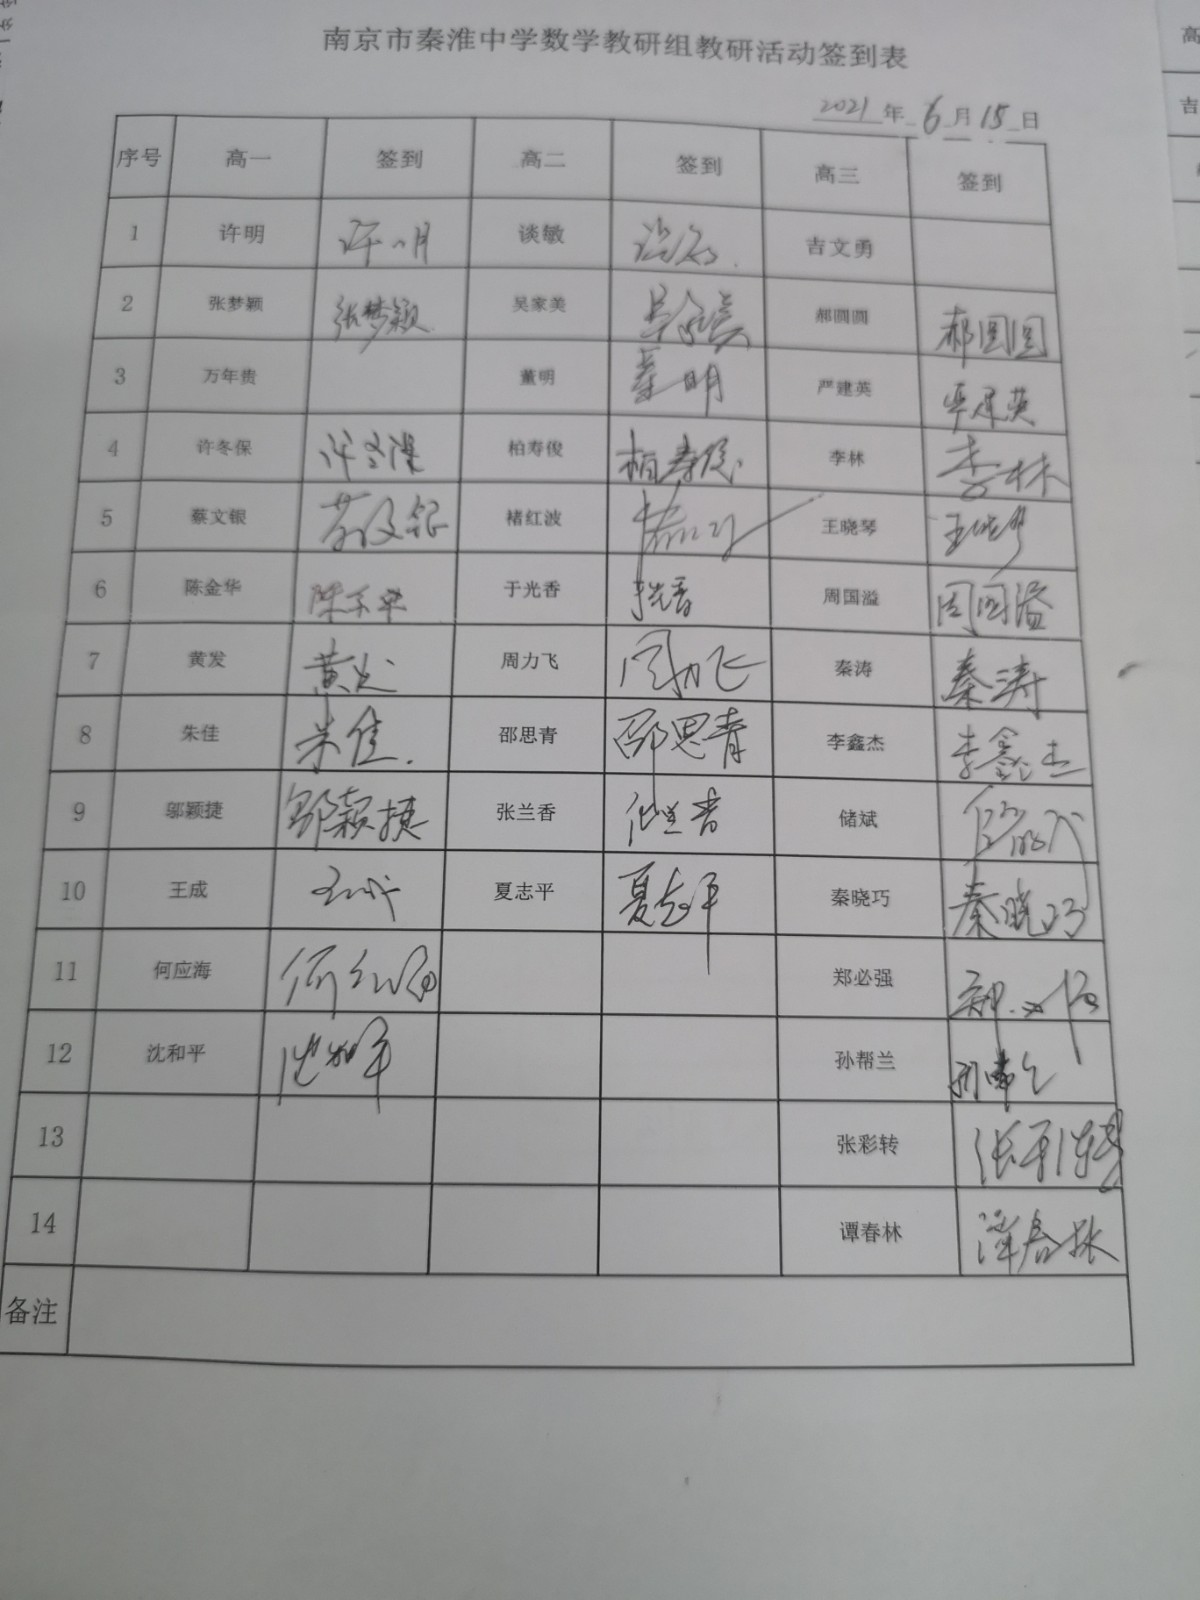 南京市秦淮中学数学教研组教研活动签到表
2021 年 6 月 15 日
序号 高一 签到 高二 签到 高三 签到
1 许明 许明 谈敏 吉文勇
2 张梦颖 张梦颖 吴家美 吴家美 郝圆圆 郝圆圆
3 万年贵 董明 董明 严建英 严建英
4 许冬保 许冬保 柏寿俊 柏寿俊 李林 李林
5 蔡文银 蔡文银 褚红波 王晓琴 王晓琴
6 陈金华 于光香 于光香 周国溢 周国溢
7 黄发 黄发 周力飞 周力飞 秦涛 秦涛
8 朱佳 朱佳 邵思青 邵思青 李鑫杰 李鑫杰
9 邬颖捷 邬颖捷 张兰香 张兰香 储斌
10 王成 王成 夏志平 夏志平 秦晓巧 秦晓巧
11 何应海 郑必强 郑必强
12 沈和平 沈和平 孙帮兰
13 张彩转
14 谭春林 谭春林
备注